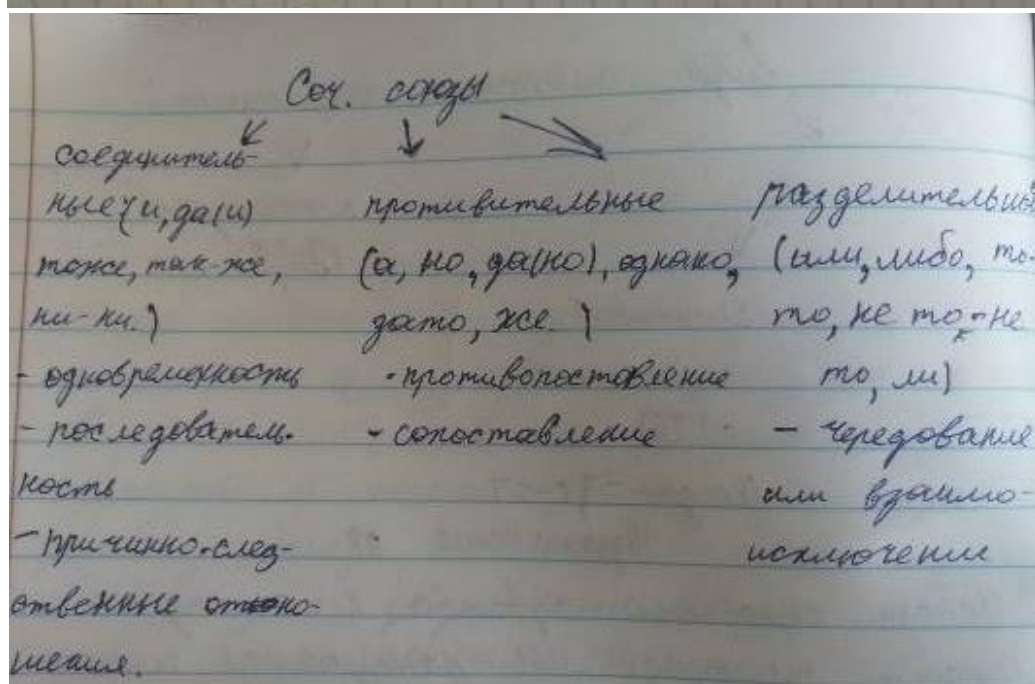 Соч. союзы
соединитель-
ные (и, да(и)
тоже, так-же,
ни-ни.)
- одновременность
- последователь-
ность
- причинно-след-
ственные отно-
шения.
противительные
(а, но, да(но), однако,
зато, же.)
- противопоставление
- сопоставление
разделительные
(или, либо, то-
то, не то - не
то, ли)
- чередование
или взаимо-
исключение